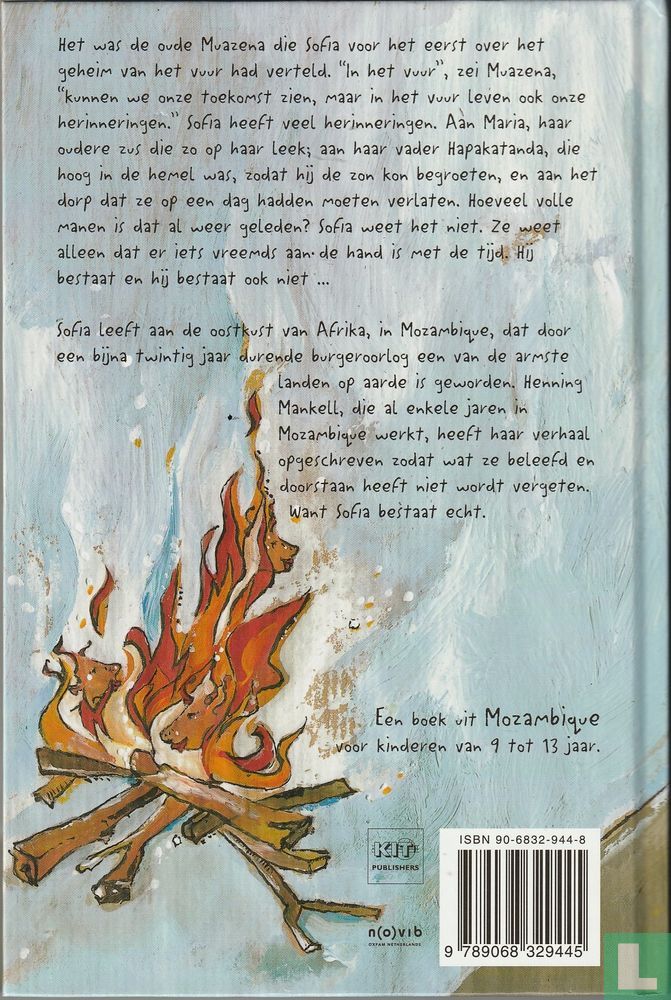 Het was de oude Muazena die Sofia voor het eerst over het
geheim van het vuur had verteld. "In het vuur", zei Muazena,
"kunnen we onze toekomst zien, maar in het vuur leven ook onze
herinneringen." Sofia heeft veel herinneringen. Aan Maria, haar
oudere zus die zo op haar leek; aan haar vader Hapakatanda, die
hoog in de hemel was, zodat hij de zon kon begroeten, en aan het
dorp dat ze op een dag hadden moeten verlaten. Hoeveel volle
manen is dat al weer geleden? Sofia weet het niet. Ze weet
alleen dat er iets vreemds aan de hand is met de tijd. Hij
bestaat en hij bestaat ook niet ...
Sofia leeft aan de oostkust van Afrika, in Mozambique, dat door
een bijna twintig jaar durende burgeroorlog een van de armste
landen op aarde is geworden. Henning
Mankell, die al enkele jaren in
Mozambique werkt, heeft haar verhaal
opgeschreven zodat wat ze beleefd en
doorstaan heeft niet wordt vergeten.
Want Sofia bestaat echt.
Een boek uit Mozambique
voor kinderen van 9 tot 13 jaar.
KIT
PUBLISHERS
n(o)vib
OXFAM NETHERLANDS
ISBN 90-6832-944-8
9 789068 329445
L